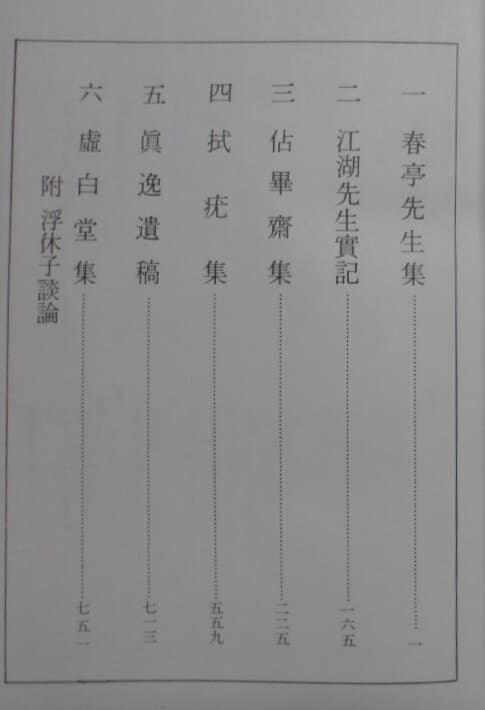 一 春亭先生集……一
二 江湖先生實記……一六五
三 佔畢齋集……二二五
四 拭疣集……五五九
五 眞逸遺稿……七一三
六 虛白堂集……七五一
附 浮休子談論